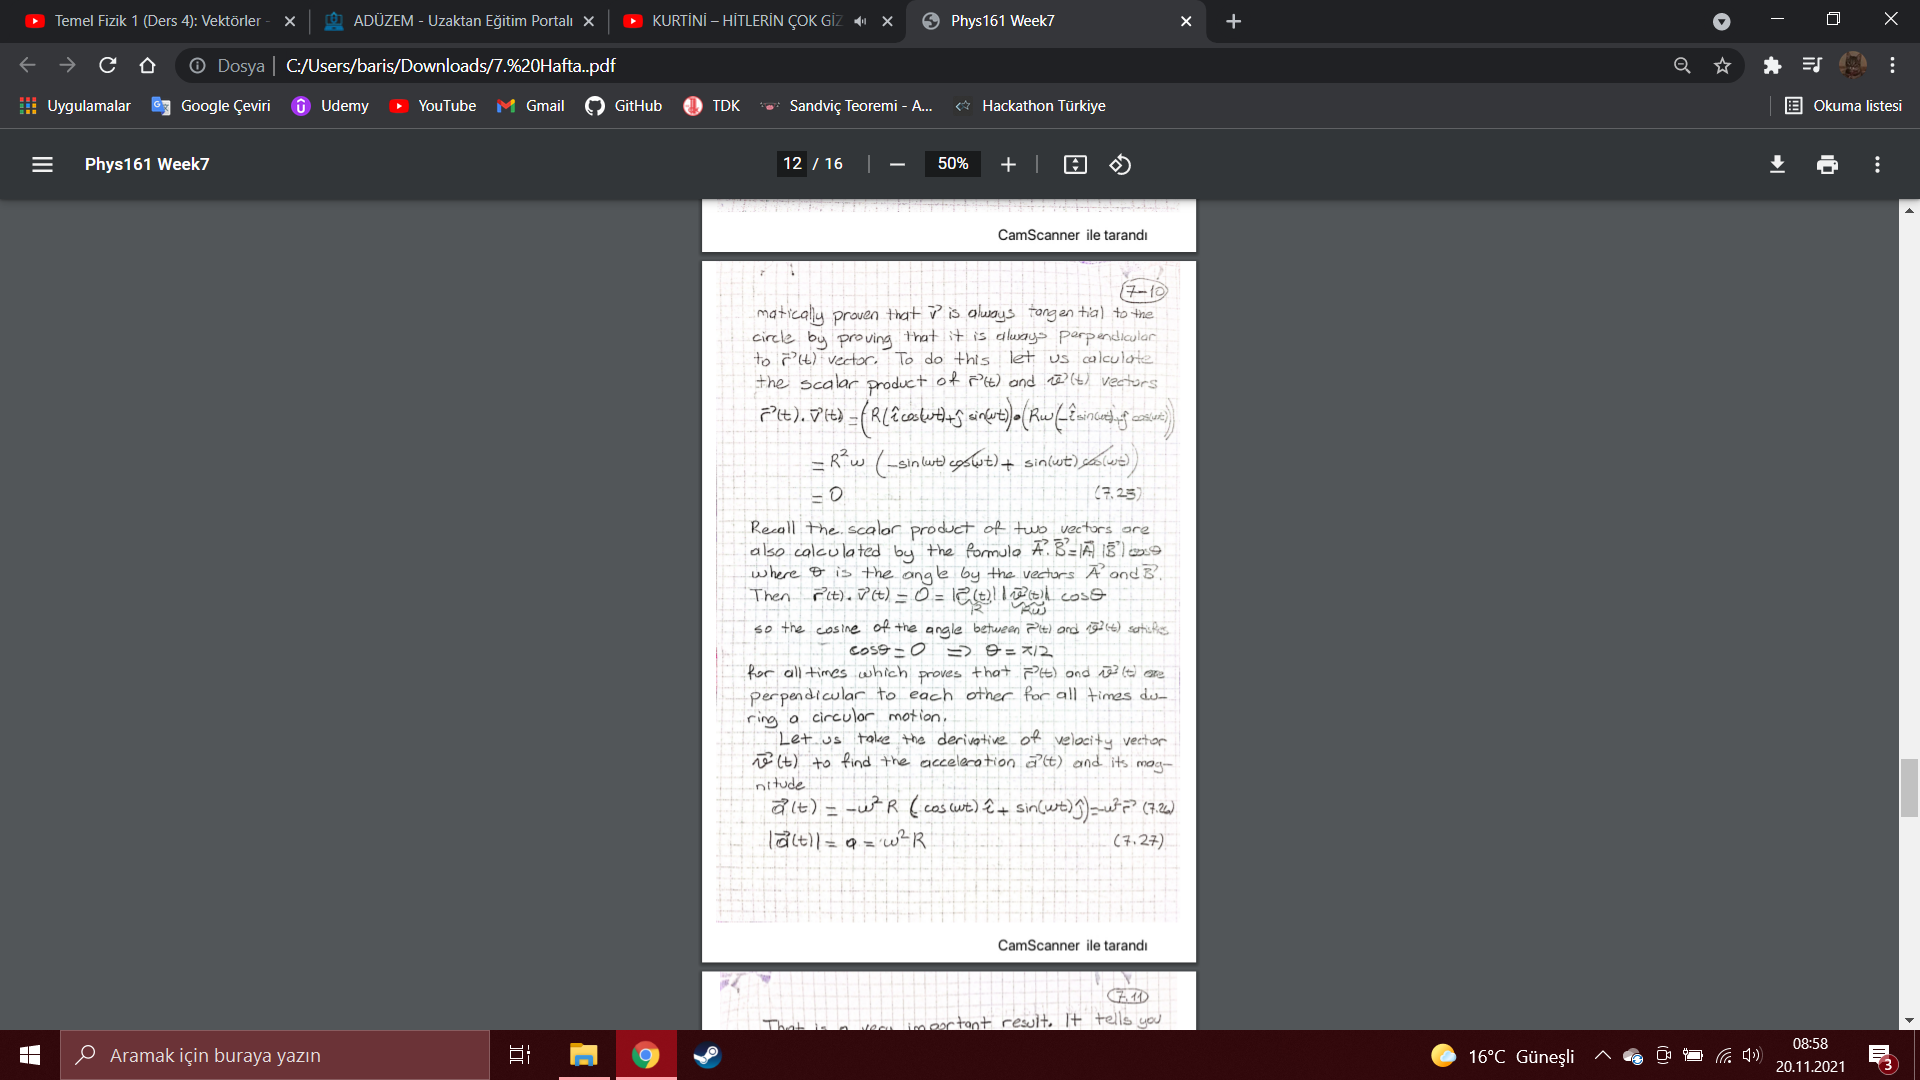 Temel Fizik 1 (Ders 4): Vektörler -
ADÜZEM - Uzaktan Eğitim Portalı
KURTİNİ – HİTLERİN ÇOK GİZ
Phys161 Week7
Dosya
C:/Users/baris/Downloads/7.%20Hafta..pdf
Uygulamalar
Google Çeviri
Udemy
YouTube
Gmail
GitHub
TDK
Sandviç Teoremi - A...
Hackathon Türkiye
Okuma listesi
Phys161 Week7
12 / 16
50%
CamScanner ile tarandı
7-10
matically proven that v⃗ is always tangential to the
circle by proving that it is always perpendicular
to r⃗(t) vector. To do this let us calculate
the scalar product of r⃗(t) and v⃗(t) vectors
r⃗(t).v⃗(t) = (R(î cos(wt)+ĵ sin(wt))•(Rw(-î sin(wt)+ĵ cos(wt))
= R²w (-sin(wt) cos(wt) + sin(wt) cos(wt))
= 0 (7.25)
Recall the scalar product of two vectors are
also calculated by the formula A⃗.B⃗=|A⃗| |B⃗| cosθ
where θ is the angle by the vectors A⃗ and B⃗.
Then r⃗(t).v⃗(t) = 0 = |r⃗(t)| |v⃗(t)| cosθ
R Rw
so the cosine of the angle between r⃗(t) and v⃗(t) satisfies
cosθ = 0 ⇒ θ = π/2
for all times which proves that r⃗(t) and v⃗(t) are
perpendicular to each other for all times du-
ring a circular motion.
Let us take the derivative of velocity vector
v⃗(t) to find the acceleration a⃗(t) and its mag-
nitude
a⃗(t) = -w²R (cos(wt) î + sin(wt) ĵ)=-w²r⃗ (7.26)
|a⃗(t)| = a = w²R (7.27)
CamScanner ile tarandı
7.11
That is a very important result. It tells you
Aramak için buraya yazın
16°C Güneşli
08:58
20.11.2021
3